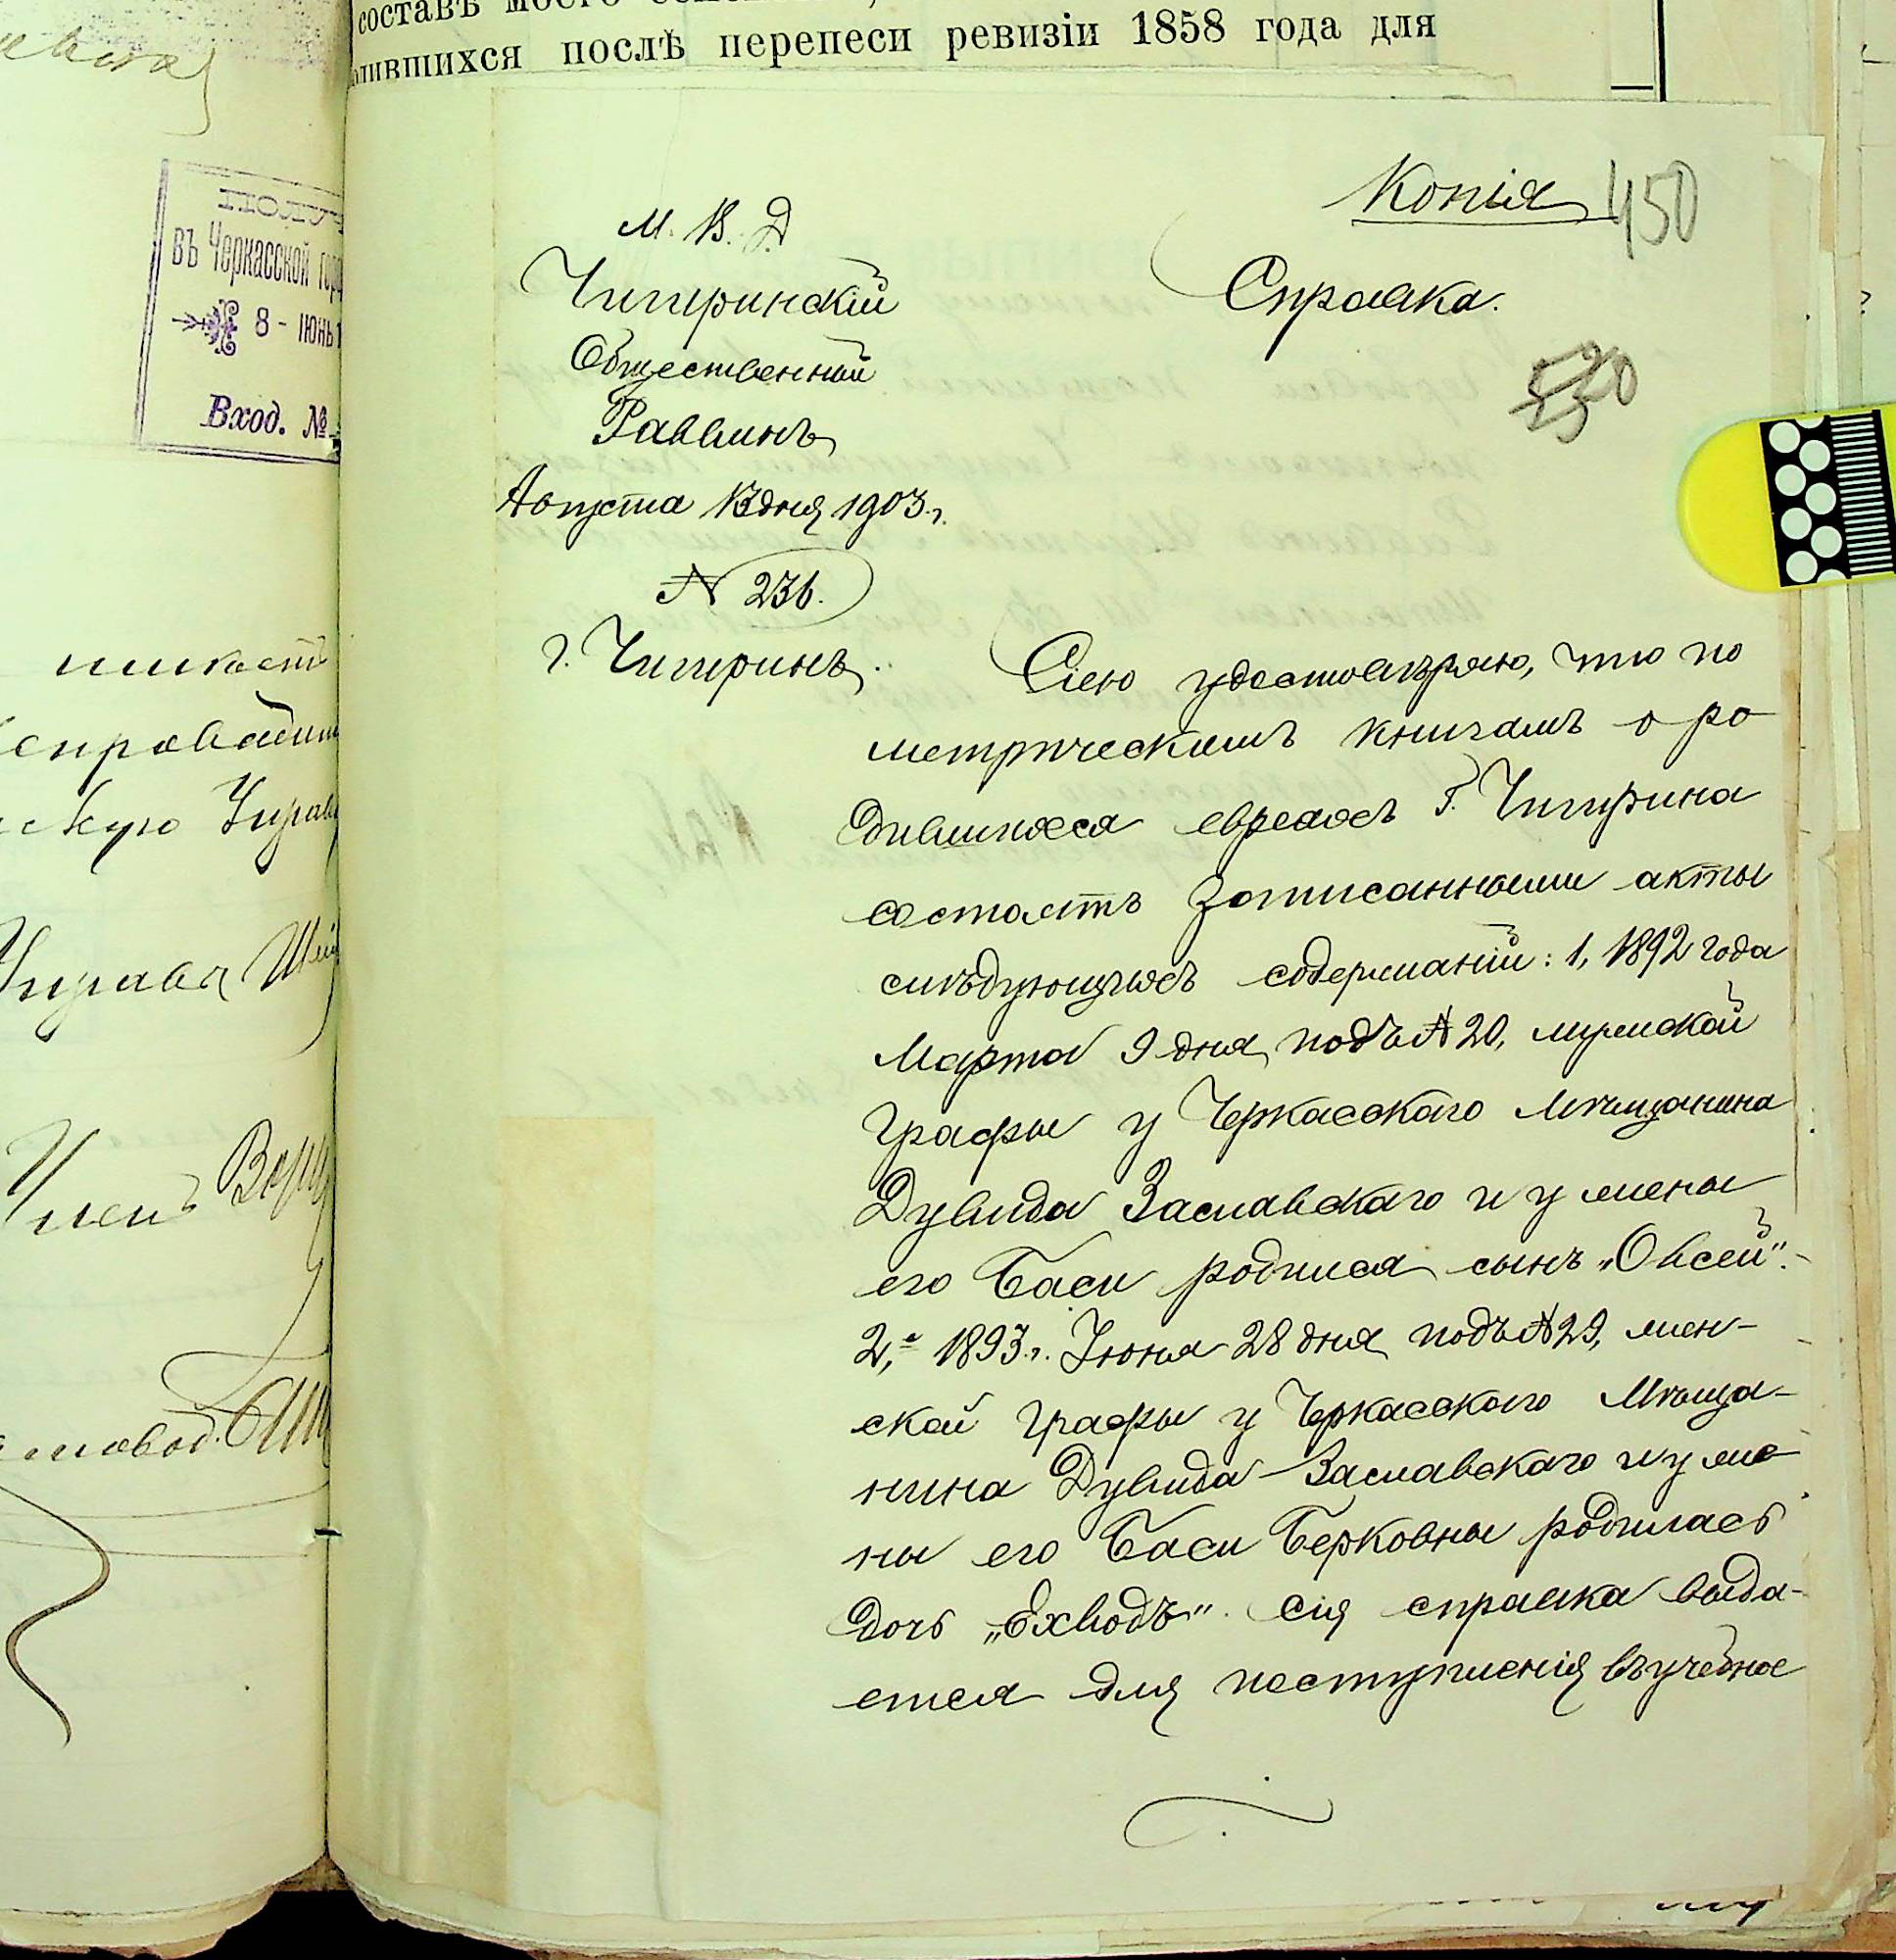 составъ
лившихся послѣ переписи ревизіи 1858 года для
въ Черкасской гор
8 - ІЮНЬ
Вход. №
Управа
Членъ
Копія 450
М. В. Д
Чигиринскій
Общественный
Раввинъ
Августа 13 дня 1903 г.
№ 236.
г. Чигиринъ.
Справка.
520
Сіею удостовѣряю, что по
метрическимъ книгамъ о ро
дившихся евреяхъ г. Чигирина
состоятъ записанными акты
слѣдующихъ содержаній: 1, 1892 года
Марта 9 дня подъ № 20, мужской
графы у Черкасскаго мѣщанина
Дувида Заславскаго и у жены
его Баси родился сынъ „Овсей".
2,е 1893 г. Іюня 28 дня подъ № 29, жен-
ской графы у Черкасскаго Мѣща-
нина Дувида Заславскаго и у же
ны его Баси Берковны родилась
дочь „Ехводъ". Сія справка выда-
ется для поступленія въ учебное